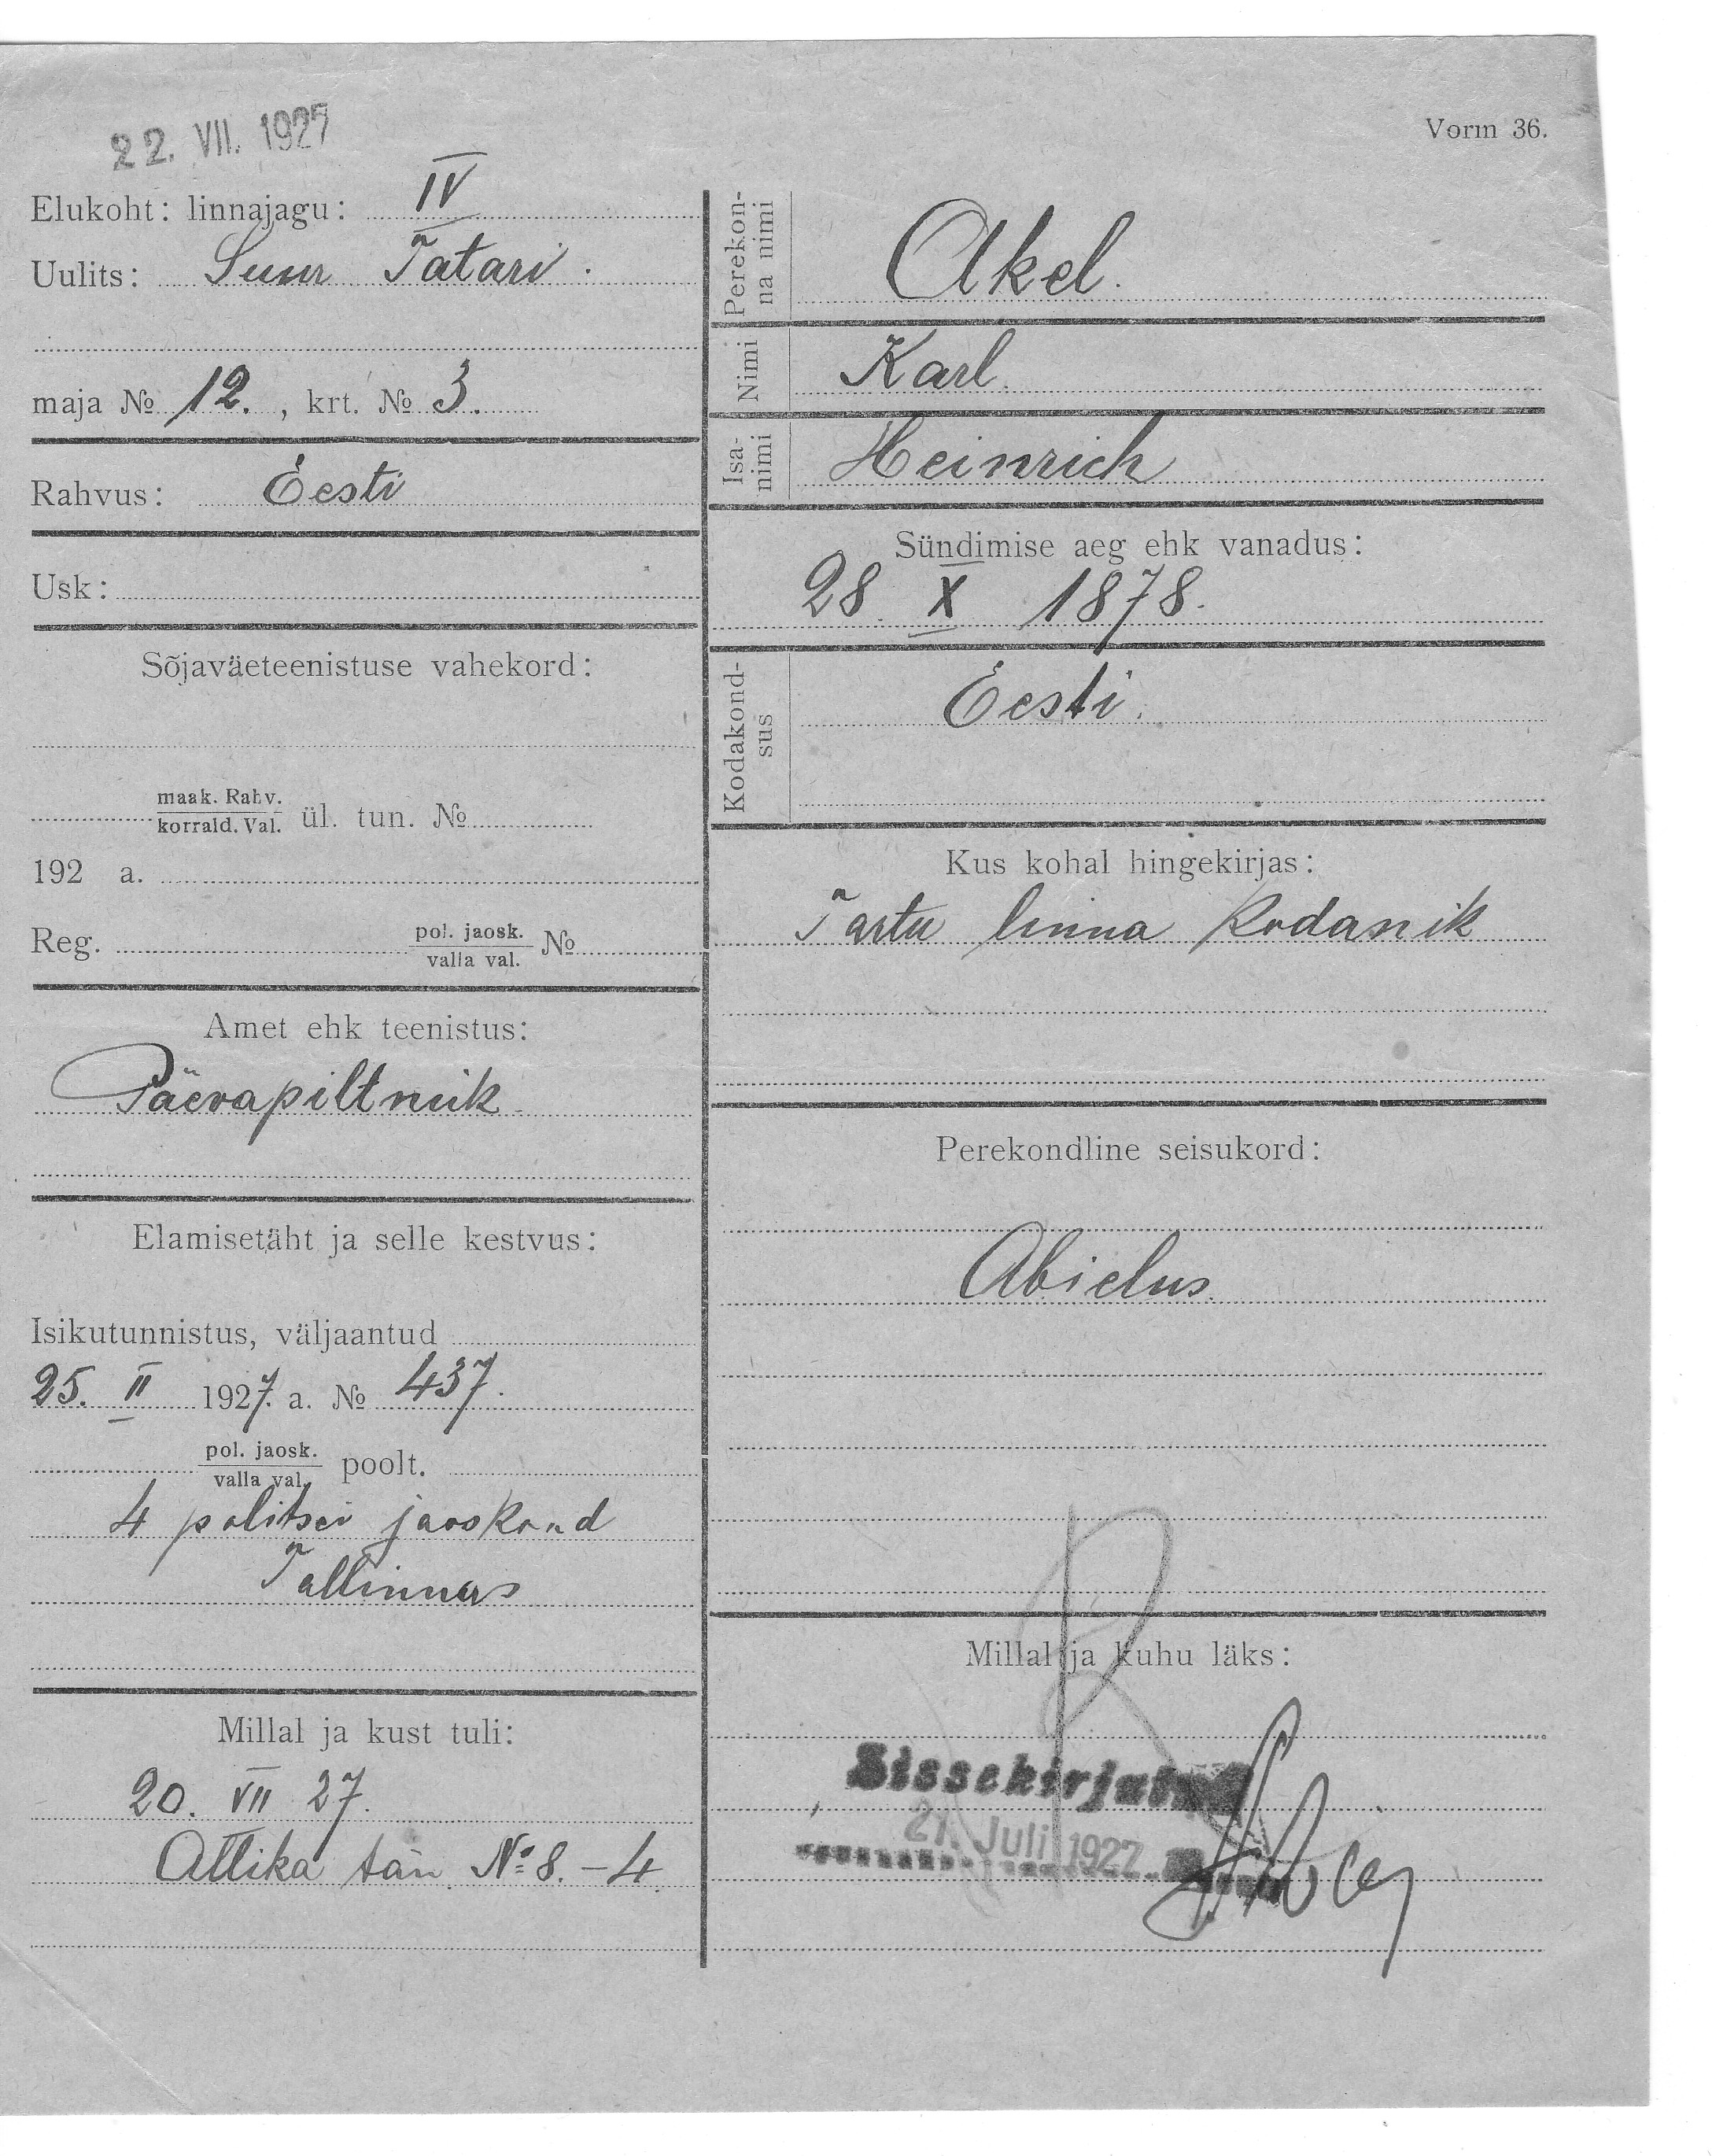 22. VII. 1927
Vorm 36.
Elukoht: linnajagu: IV
Uulits: Suur Tatari.
maja № 12., krt. № 3.
Rahvus: Eesti
Usk:
Sõjaväeteenistuse vahekord:
maak. Rahv.
korrald. Val. ül. tun. №
192 a.
Reg. pol. jaosk. №
valla val.
Amet ehk teenistus:
Päevapiltnik
Elamisetäht ja selle kestvus:
Isikutunnistus, väljaantud
25. II 1927. a. № 437.
pol. jaosk.
valla val. poolt.
4 politsei jaoskond
Tallinnas
Millal ja kust tuli:
20. VII 27.
Allika tän. № 8.-4.
Perekon-
na nimi
Akel.
Nimi
Karl.
Isa-
nimi
Heinrich
Sündimise aeg ehk vanadus:
28. X 1878.
Kodakond-
sus
Eesti.
Kus kohal hingekirjas:
Tartu linna kodanik
Perekondline seisukord:
Abielus.
Millal ja kuhu läks:
Sissekirjutud
21. Juli 1927.